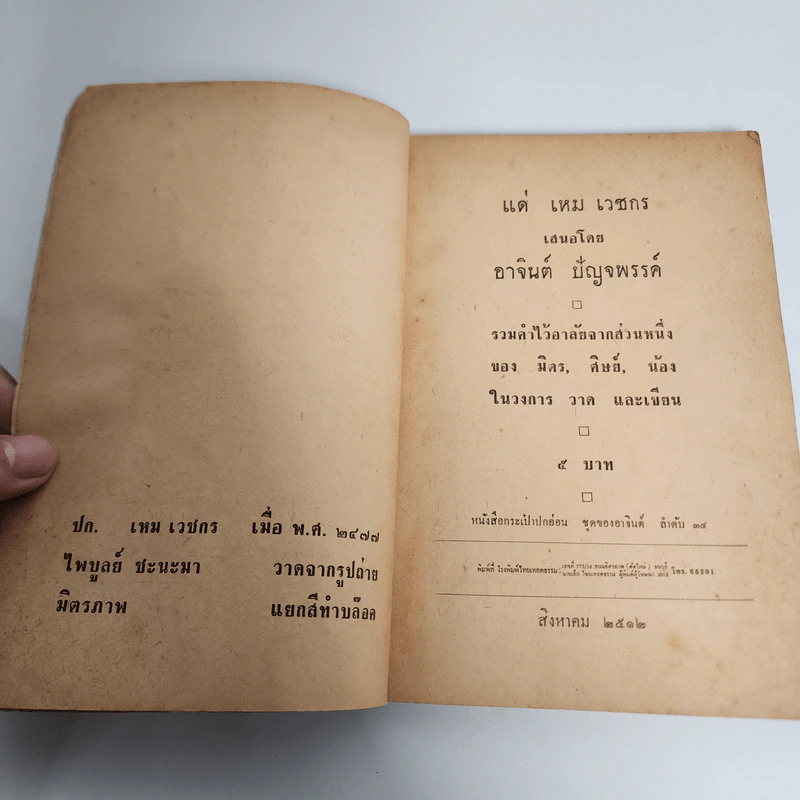 ปก. เหม เวชกร เมื่อ พ.ศ. ๒๔๗๗
ไพบูลย์ ชะนะมา วาดจากรูปถ่าย
มิตรภาพ แยกสีทำบล๊อค
แด่ เหม เวชกร
เสนอโดย
อาจินต์ ปัญจพรรค์
รวมคำไว้อาลัยจากส่วนหนึ่ง
ของ มิตร, ศิษย์, น้อง
ในวงการ วาด และเขียน
๕ บาท
หนังสือกระเป๋าปกอ่อน ชุดของอาจินต์ ลำดับ ๓๙
พิมพ์ที่ โรงพิมพ์ไทยเทอดธรรม โทร. 65261
สิงหาคม ๒๕๑๒